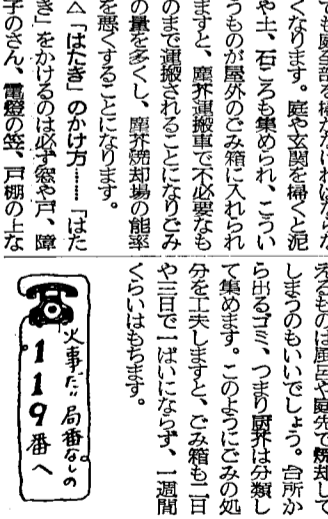 くなります。庭や玄関を掃くと泥
や土、石ころも集められ、こうい
うものが屋外のごみ箱に入れられ
ますと、塵芥運搬車で不必要なも
のまで運搬されることになりごみ
の量を多くし、塵芥焼却場の能率
を悪くすることになります。
△「はたき」のかけ方……「はた
き」をかけるのは必ず窓や戸、障
子のさん、電燈の笠、戸棚の上な
えるものは や庭先で焼却して
しまうのもいいでしょう。台所か
ら出るゴミ、つまり厨芥は分類し
て集めます。このようにごみの処
分を工夫しますと、ごみ箱も二日
や三日で一ぱいにならず、一週間
くらいはもちます。
火事だ!!局番なしの
119番へ